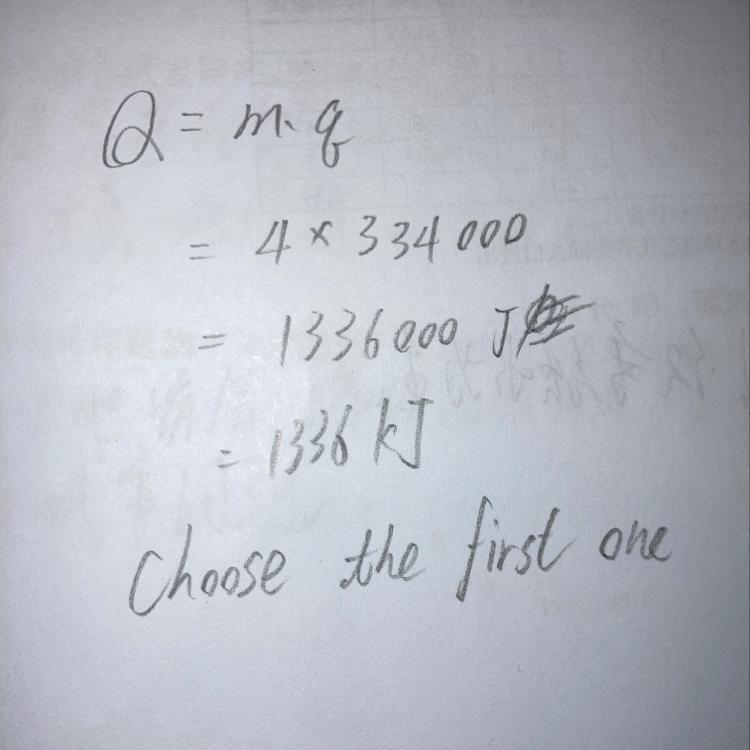 Q = m·q
= 4 × 334000
= 1336000 J
= 1336 kJ
Choose the first one